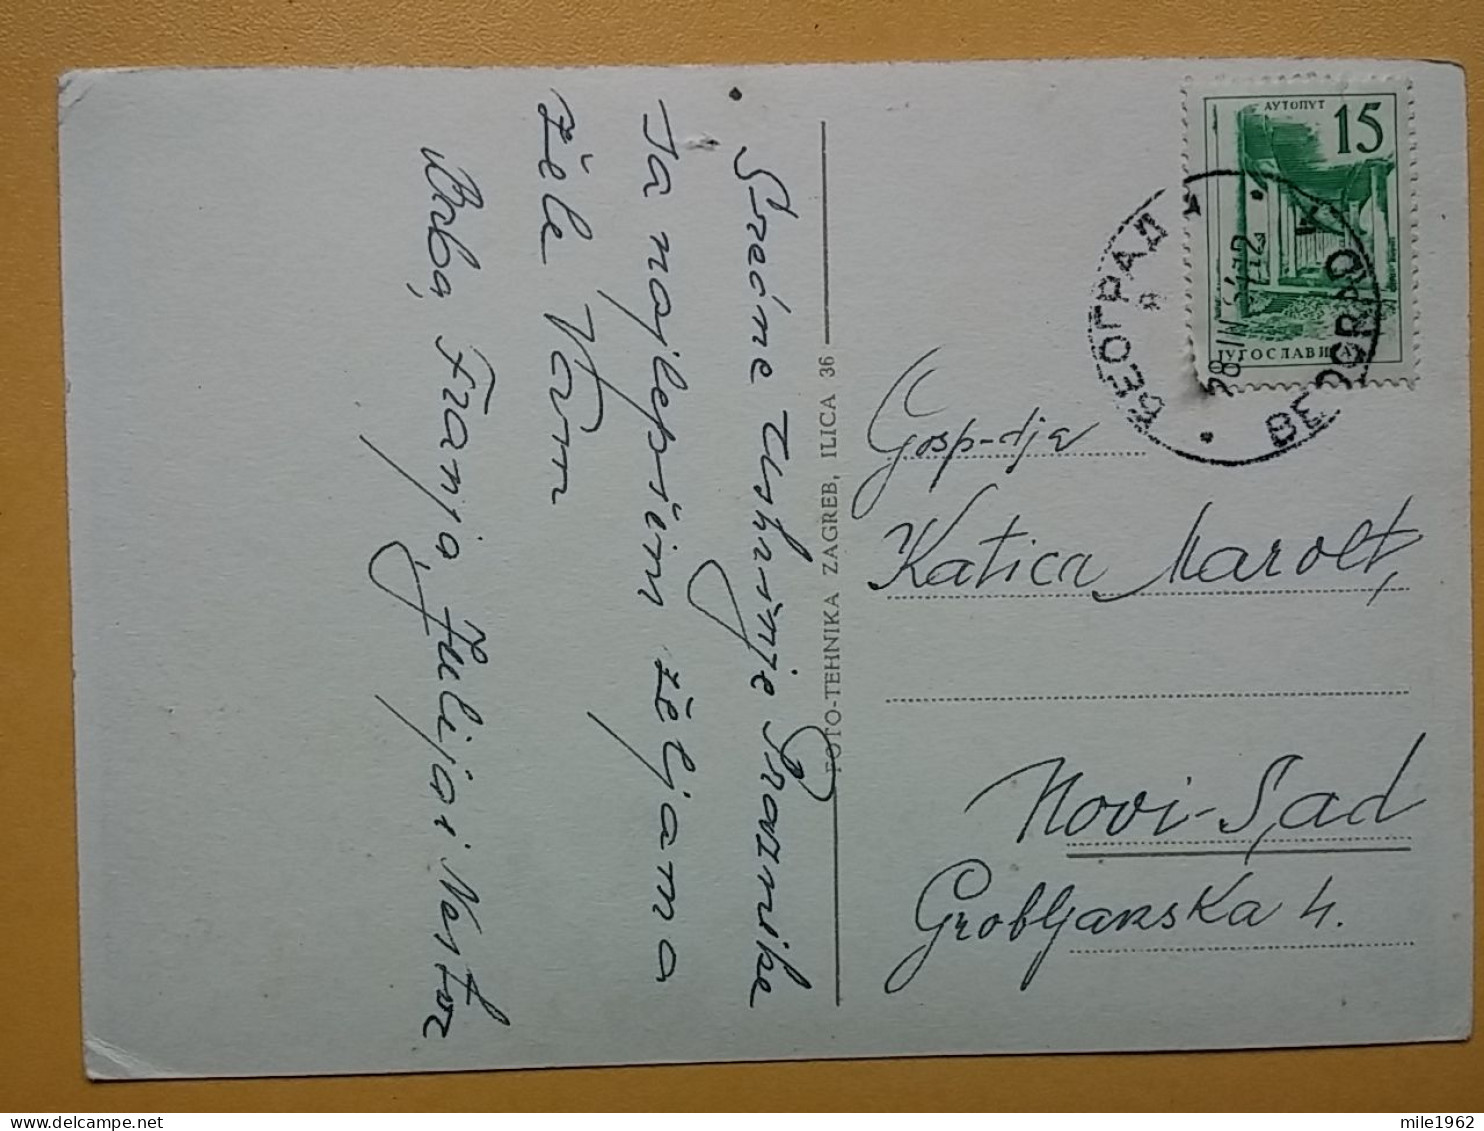 Srećne Uskršnje Praznike
sa najlepšim željama
žele Vam
Franja, Julija i Nestor
FOTO-TEHNIKA ZAGREB, ILICA 36
АУТОПУТ
15
ЈУГОСЛАВИЈА
БЕОГРАД
BEOGRAD
Gosp-dja
Katica Marolt,
Novi-Sad
Grobljanska 4.
mile1962